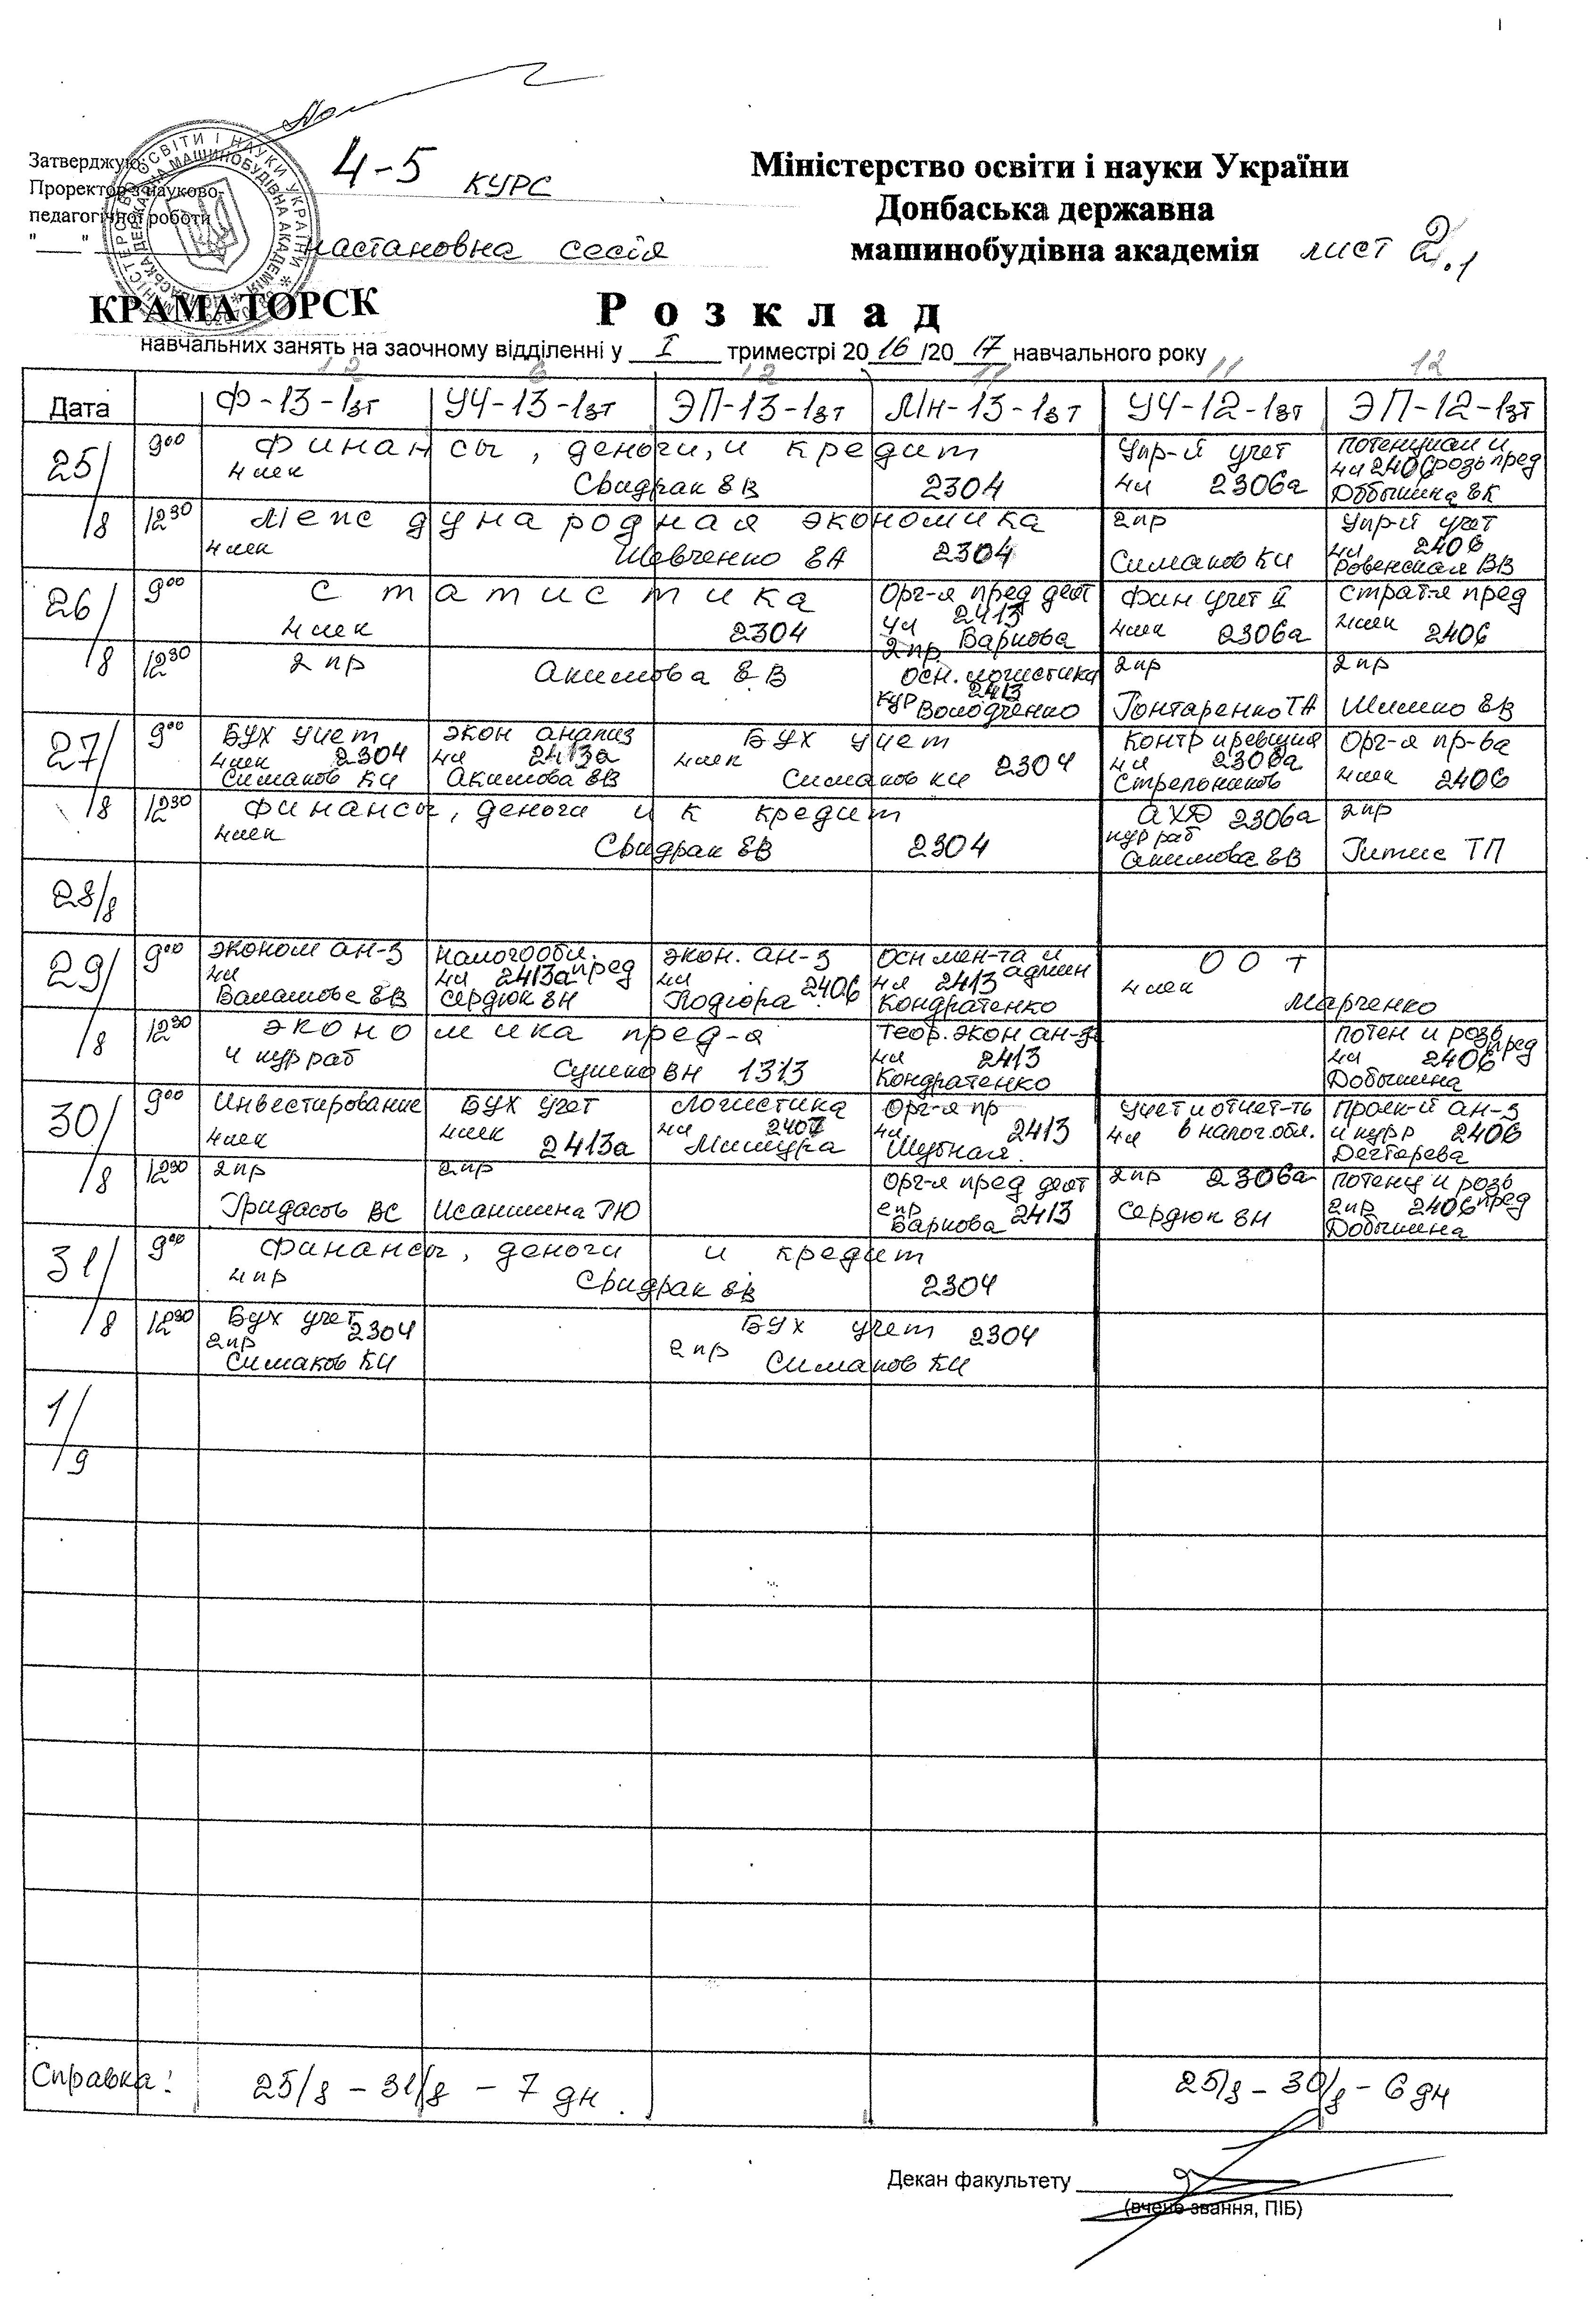 Затверджую:
Проректор з науково-
педагогічної роботи
"___"
4-5 курс
настановна сесія
Міністерство освіти і науки України
Донбаська державна
машинобудівна академія
лист 2.1
КРАМАТОРСК
Р о з к л а д
навчальних занять на заочному відділенні у I триместрі 2016/2017 навчального року
12 6 12 11 11 12
Дата Ф-13-1зт УЧ-13-1зт ЭП-13-1зт МН-13-1зт УЧ-12-1зт ЭП-12-1зт
25/8 900
Финансы, деньги, и кредит
4 лек Свидрак ЕВ 2304
Упр-й учет
4л 2306а
потенциал и
4л 2406 розв пред
Добыкина ЕК
12 30
Международная экономика
4 лек Шевченко ЕА 2304
2пр
Симаков КИ
Упр-й учет
4л 2406
Ровенская ВВ
26/8 900
Статистика
4 лек 2304
Орг-я пред деят
4л 2413
2пр Варкова
Фин учет II
4лек 2306а
Страт-я пред
2лек 2406
12 30
2 пр Акимова Е.В
Осн. логистика
2413
кур Володченко
2пр
Гонтаренко ТА
2пр
Шимко ЕВ
27/8 900
Бух учет
4лек 2304
Симаков КИ
Экон анализ
4л 2413а
Акимова ЕВ
Бух учет
4лек 2304
Симаков КИ
Контр и ревизия
4л 2306а
Стрельников
Орг-я пр-ва
4лек 2406
12 30
Финансы, деньги и к кредит
4лек Свидрак ЕВ 2304
АХД 2306а
кур раб
Акимова ЕВ
2пр
Гитис ТП
28/8
29/8 900
Эконом ан-з
4л
Балашова ЕВ
Налогообл.
4л 2413а пред
Сердюк ЕН
Экон. ан-з
4л 2406
Подгора
Осн мен-та и
4л 2413 админ
Кондратенко
ООТ
4 лек
Марченко
12 30
Экономика пред-я
и кур раб
Сушко ВН 1313
Теор. экон ан-за
4л 2413
Кондратенко
Потен и розв
4л 2406 пред
Добыкина
30/8 900
Инвестирование
4лек
Бух учет
4лек 2413а
Логистика
4л 2407
Мишура
Орг-я пр
4л 2413
Шубная
Учет и отчет-ть
4л в налог.обл.
Проек-й ан-з
и кур р 2406
Дегтярева
12 30
2пр
Гридасов ВС
2пр
Исаншина ГЮ
Орг-я пред деят
2пр 2413
Варкова
2пр 2306а
Сердюк ЕН
Потенц и розв
2пр 2406 пред
Добыкина
31/8 900
Финансы, деньги и кредит
4пр Свидрак ЕВ 2304
12 30
Бух учет
2пр 2304
Симаков КИ
Бух учет 2304
2пр Симаков КИ
1/9
Справка: 25/8 - 31/8 - 7 дн. 25/8 - 30/8 - 6 дн
Декан факультету
(вчене звання, ПІБ)